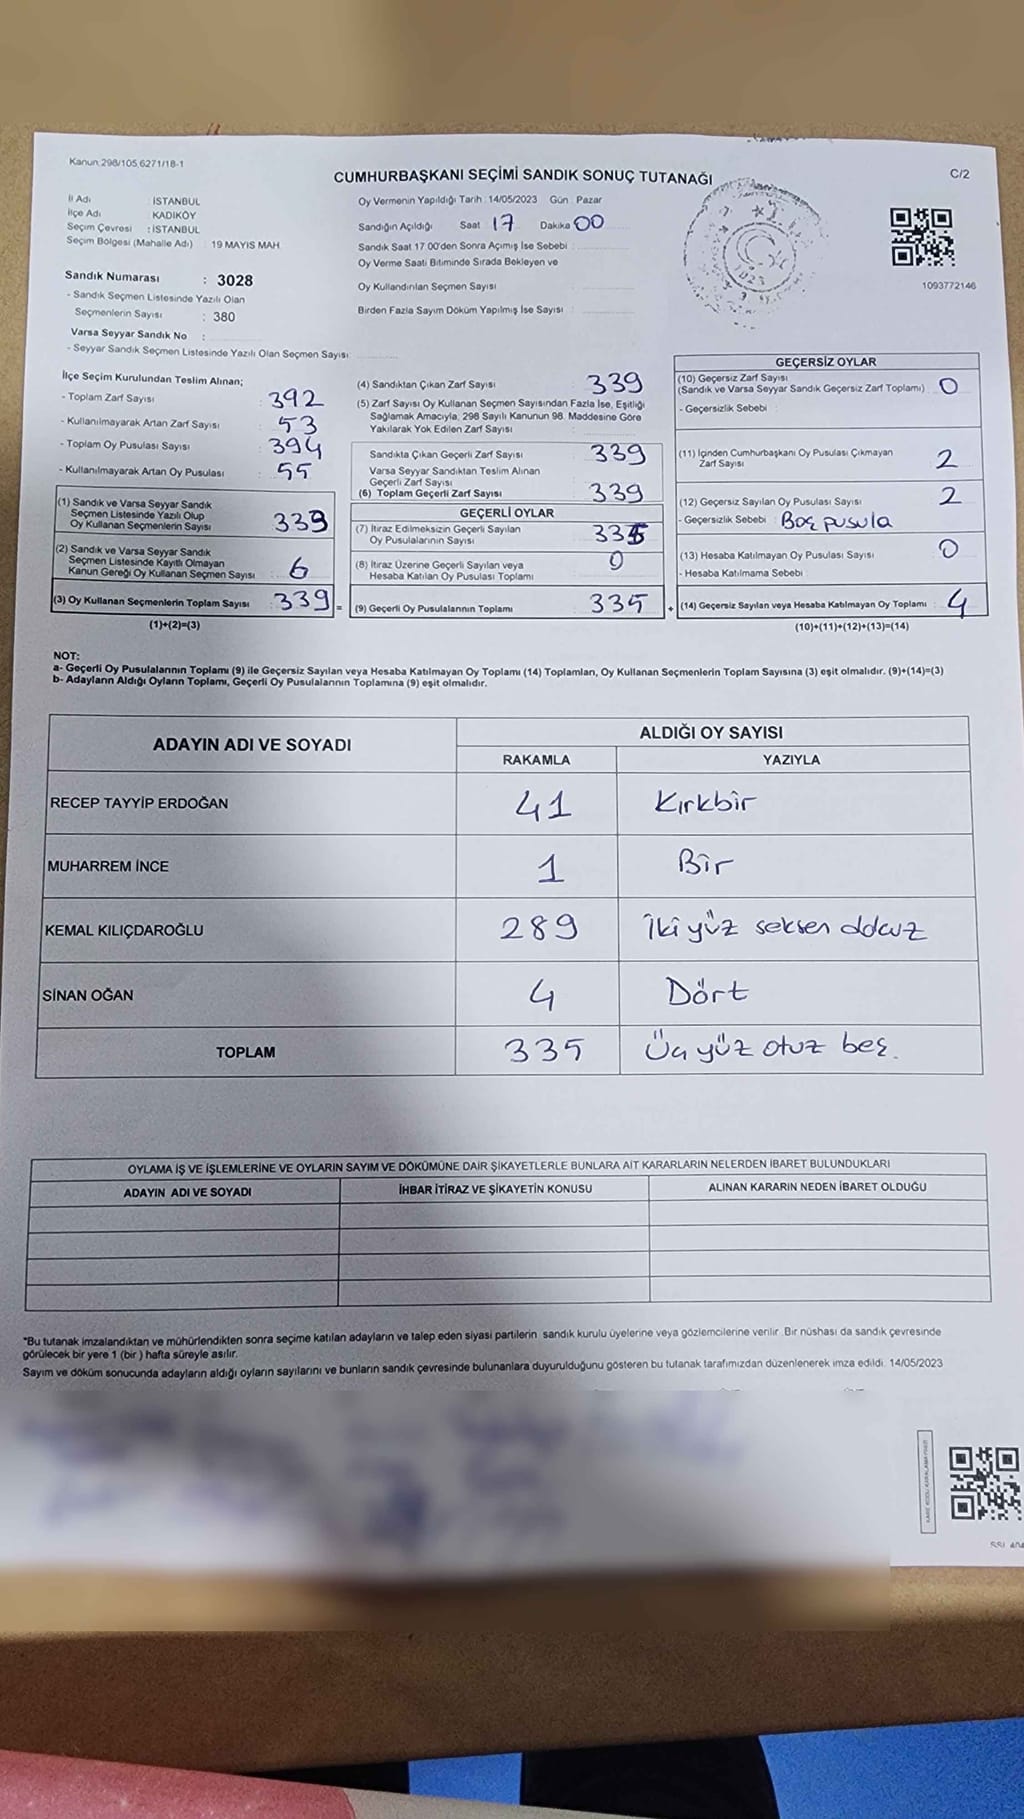 Kanun 298/105,6271/18-1
CUMHURBAŞKANI SEÇİMİ SANDIK SONUÇ TUTANAĞI
C/2
İl Adı : İSTANBUL
İlçe Adı : KADIKÖY
Seçim Çevresi : İSTANBUL
Seçim Bölgesi (Mahalle Adı) : 19 MAYIS MAH
Sandık Numarası : 3028
- Sandık Seçmen Listesinde Yazılı Olan
Seçmenlerin Sayısı : 380
Varsa Seyyar Sandık No :
- Seyyar Sandık Seçmen Listesinde Yazılı Olan Seçmen Sayısı
Oy Vermenin Yapıldığı Tarih : 14/05/2023 Gün : Pazar
Sandığın Açıldığı Saat 17 Dakika 00
Sandık Saat 17.00'den Sonra Açımış İse Sebebi :
Oy Verme Saati Bitiminde Sırada Bekleyen ve
Oy Kullandırılan Seçmen Sayısı
Birden Fazla Sayım Döküm Yapılmış İse Sayısı :
1093772146
İlçe Seçim Kurulundan Teslim Alınan;
- Toplam Zarf Sayısı : 392
- Kullanılmayarak Artan Zarf Sayısı : 53
- Toplam Oy Pusulası Sayısı : 394
- Kullanılmayarak Artan Oy Pusulası : 55
(1) Sandık ve Varsa Seyyar Sandık
Seçmen Listesinde Yazılı Olup
Oy Kullanan Seçmenlerin Sayısı : 339
(2) Sandık ve Varsa Seyyar Sandık
Seçmen Listesinde Kayıtlı Olmayan
Kanun Gereği Oy Kullanan Seçmen Sayısı : 6
(3) Oy Kullanan Seçmenlerin Toplam Sayısı : 339 =
(1)+(2)=(3)
(4) Sandıktan Çıkan Zarf Sayısı : 339
(5) Zarf Sayısı Oy Kullanan Seçmen Sayısından Fazla İse, Eşitliği
Sağlamak Amacıyla; 298 Sayılı Kanunun 98. Maddesine Göre
Yakılarak Yok Edilen Zarf Sayısı :
Sandıkta Çıkan Geçerli Zarf Sayısı : 339
Varsa Seyyar Sandıktan Teslim Alınan
Geçerli Zarf Sayısı
(6) Toplam Geçerli Zarf Sayısı : 339
GEÇERLİ OYLAR
(7) İtiraz Edilmeksizin Geçerli Sayılan
Oy Pusulalarının Sayısı : 335
(8) İtiraz Üzerine Geçerli Sayılan veya
Hesaba Katılan Oy Pusulası Toplamı : 0
(9) Geçerli Oy Pusulalarının Toplamı : 335 +
GEÇERSİZ OYLAR
(10) Geçersiz Zarf Sayısı
(Sandık ve Varsa Seyyar Sandık Geçersiz Zarf Toplamı) : 0
- Geçersizlik Sebebi :
(11) İçinden Cumhurbaşkanı Oy Pusulası Çıkmayan
Zarf Sayısı : 2
(12) Geçersiz Sayılan Oy Pusulası Sayısı : 2
- Geçersizlik Sebebi : Boş pusula
(13) Hesaba Katılmayan Oy Pusulası Sayısı : 0
- Hesaba Katılmama Sebebi :
(14) Geçersiz Sayılan veya Hesaba Katılmayan Oy Toplamı : 4
(10)+(11)+(12)+(13)=(14)
NOT:
a- Geçerli Oy Pusulalarının Toplamı (9) ile Geçersiz Sayılan veya Hesaba Katılmayan Oy Toplamı (14) Toplamları, Oy Kullanan Seçmenlerin Toplam Sayısına (3) eşit olmalıdır. (9)+(14)=(3)
b- Adayların Aldığı Oyların Toplamı, Geçerli Oy Pusulalarının Toplamına (9) eşit olmalıdır.
ADAYIN ADI VE SOYADI
ALDIĞI OY SAYISI
RAKAMLA YAZIYLA
RECEP TAYYİP ERDOĞAN 41 Kırkbir
MUHARREM İNCE 1 Bir
KEMAL KILIÇDAROĞLU 289 İki yüz seksen dokuz
SİNAN OĞAN 4 Dört
TOPLAM 335 Üç yüz otuz beş.
OYLAMA İŞ VE İŞLEMLERİNE VE OYLARIN SAYIM VE DÖKÜMÜNE DAİR ŞİKAYETLERLE BUNLARA AİT KARARLARIN NELERDEN İBARET BULUNDUKLARI
ADAYIN ADI VE SOYADI İHBAR İTİRAZ VE ŞİKAYETİN KONUSU ALINAN KARARIN NEDEN İBARET OLDUĞU
*Bu tutanak imzalandıktan ve mühürlendikten sonra seçime katılan adayların ve talep eden siyasi partilerin sandık kurulu üyelerine veya gözlemcilerine verilir. Bir nüshası da sandık çevresinde
görülecek bir yere 1 (bir ) hafta süreyle asılır.
Sayım ve döküm sonucunda adayların aldığı oyların sayılarını ve bunların sandık çevresinde bulunanlara duyurulduğunu gösteren bu tutanak tarafımızdan düzenlenerek imza edildi. 14/05/2023